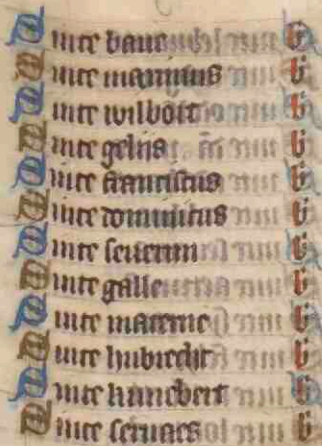 Sinte bave b
Sinte martinus b
Sinte wilbort b
Sinte gelijs b
Sinte franciscus b
Sinte dominicus b
Sinte severin b
Sinte galle b
Sinte materne b
Sinte hubrecht b
Sinte kunebert b
Sinte servaes b